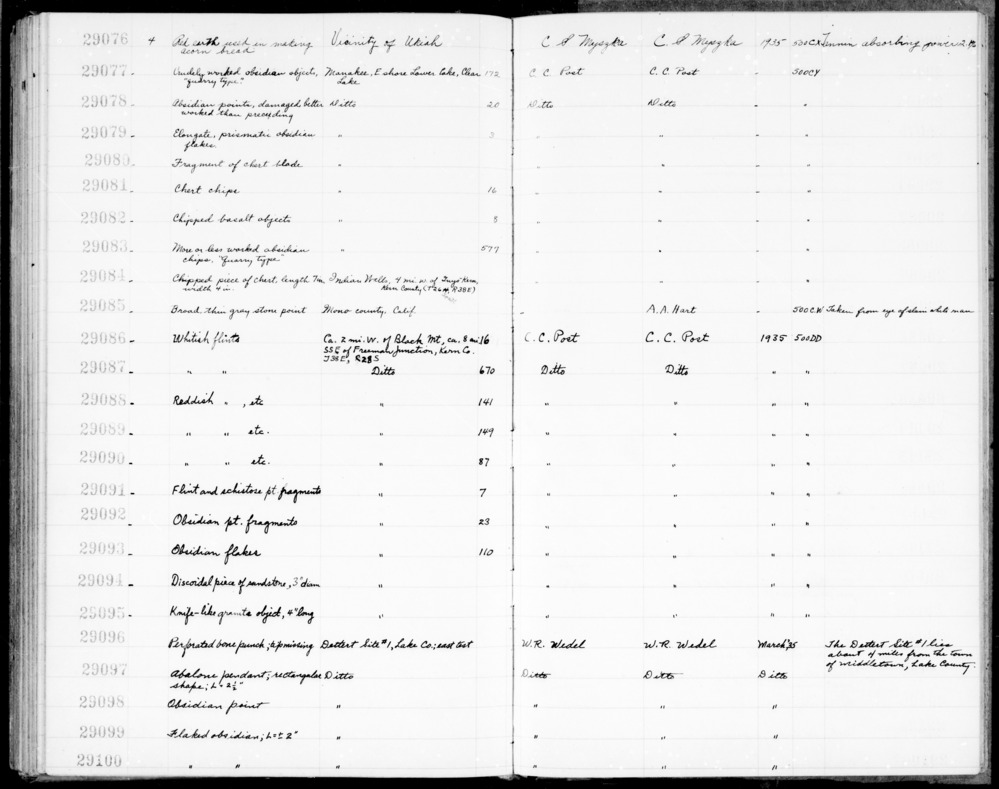 29076 4 Red earth used in making Vicinity of Ukiah C S Myszka C. S Myszka 1935 500CX Tannin absorbing power
acorn bread
29077 Crudely worked obsidian object, Manakee, E shore Lower Lake, Clear 172 C. C. Post C. C. Post " 500CY
"quarry type" Lake
29078 Obsidian points, damaged better Ditto 20 Ditto Ditto " "
worked than preceding
29079 Elongate, prismatic obsidian " 3 " " " "
flakes
29080 Fragment of chert blade " " " " "
29081 Chert chips " 16 " " " "
29082 Chipped basalt objects " 8 " " " "
29083 More or less worked obsidian " 577 " " " "
chips, "Quarry type"
29084 Chipped piece of chert, length 7 in Indian Wells, 4 mi. w. of Inyo Kern, " " " "
width 4 in. Kern County (T26 R38E)
29085 Broad, thin gray stone point Mono county, Calif. " A. A. Hart 500CW Taken from eye of slain white man
29086 Whitish flints Ca. 2 mi. W. of Black Mt, ca. 8 mi 16 C. C. Post C. C. Post 1935 500DD
SSE of Freeman Junction, Kern Co.
T38E, R28S
29087 " " Ditto 670 Ditto Ditto " "
29088 Reddish " , etc " 141 " " " "
29089 " " etc. " 149 " " " "
29090 " " etc. " 87 " " " "
29091 Flint and schistose pt fragments " 7 " " " "
29092 Obsidian pt. fragments " 23 " " " "
29093 Obsidian flakes " 110 " " " "
29094 Discoidal piece of sandstone, 3" diam " " " " "
29095 Knife-like granite object, 4" long " " " " "
29096 Perforated bone punch; tip missing Dettert Site #1, Lake Co; east test W. R. Wedel W. R. Wedel March, '35 The Dettert Site #1 lies
about of miles from the town
of Middletown, Lake County.
29097 Abalone pendant; rectangular Ditto Ditto Ditto Ditto
shape; L = 2½"
29098 Obsidian point " " " "
29099 Flaked obsidian; L = ± 2" " " " "
29100 " " " " " "